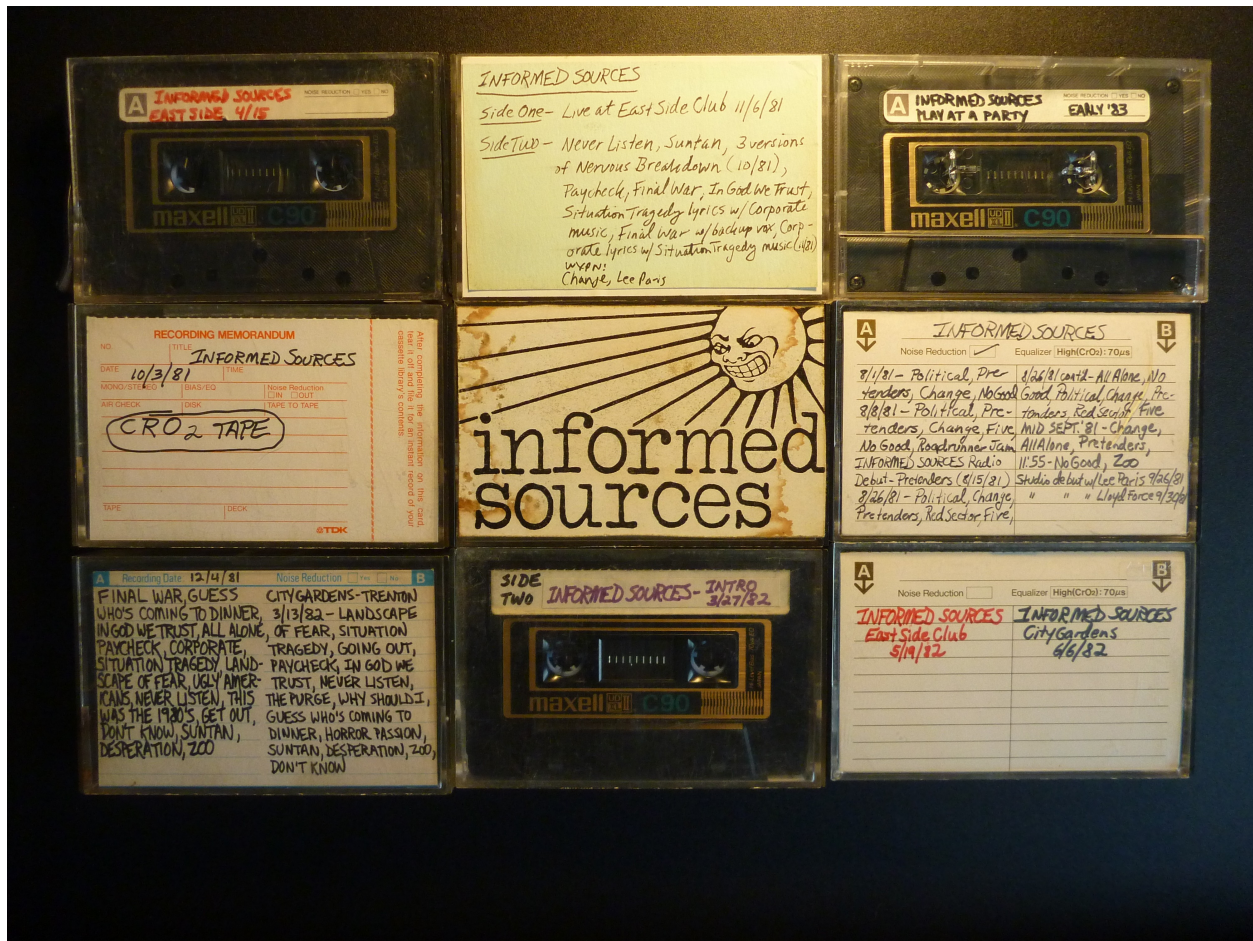 A INFORMED SOURCES
NOISE REDUCTION YES NO
EAST SIDE 4/15
maxell UD XLII C90
INFORMED SOURCES
Side One – Live at East Side Club 11/6/81
Side Two – Never Listen, Suntan, 3 versions
of Nervous Breakdown (10/81),
Paycheck, Final War, In God We Trust,
Situation Tragedy lyrics w/ Corporate
music, Final War w/ backup vox, Corp-
orate lyrics w/ Situation Tragedy music (11/81)
WXPN:
Change, Lee Paris
A INFORMED SOURCES
NOISE REDUCTION YES NO
PLAY AT A PARTY EARLY '83
maxell UD XLII C90
RECORDING MEMORANDUM
NO. TITLE INFORMED SOURCES
DATE 10/3/81 TIME
MONO/STEREO BIAS/EQ Noise Reduction
IN OUT
AIR CHECK DISK TAPE TO TAPE
CRO2 TAPE
TAPE DECK
TDK
After completing the information on this card,
tear it off and file it for an instant record of your
cassette library's contents.
informed
sources
A INFORMED SOURCES B
Noise Reduction Equalizer High(CrO2): 70μs
8/1/81 – Political, Pre-
tenders, Change, No Good
8/8/81 – Political, Pre-
tenders, Change, Five,
No Good, Roadrunner Jam
INFORMED SOURCES Radio
Debut – Pretenders (8/15/81)
8/26/81 – Political, Change,
Pretenders, Red Sector, Five,
8/26/81 contd – All Alone, No
Good, Political, Change, Pre-
tenders, Red Sector, Five
MID SEPT. '81 – Change,
All Alone, Pretenders,
11:55 – No Good, Zoo
Studio debut w/ Lee Paris 9/26/81
" " " Lloyd Force 9/30/81
A Recording Date 12/4/81 Noise Reduction Yes No B
FINAL WAR, GUESS
WHO'S COMING TO DINNER,
IN GOD WE TRUST, ALL ALONE,
PAYCHECK, CORPORATE,
SITUATION TRAGEDY, LAND-
SCAPE OF FEAR, UGLY AMER-
ICANS, NEVER LISTEN, THIS
WAS THE 1980'S, GET OUT,
DON'T KNOW, SUNTAN,
DESPERATION, ZOO
CITY GARDENS – TRENTON
3/13/82 – LANDSCAPE
OF FEAR, SITUATION
TRAGEDY, GOING OUT,
PAYCHECK, IN GOD WE
TRUST, NEVER LISTEN,
THE PURGE, WHY SHOULD I,
GUESS WHO'S COMING TO
DINNER, HORROR PASSION,
SUNTAN, DESPERATION, ZOO,
DON'T KNOW
SIDE
TWO
INFORMED SOURCES – INTRO
3/27/82
maxell UD XLII C90
A B
Noise Reduction Equalizer High(CrO2): 70μs
INFORMED SOURCES
East Side Club
5/19/82
INFORMED SOURCES
City Gardens
6/6/82